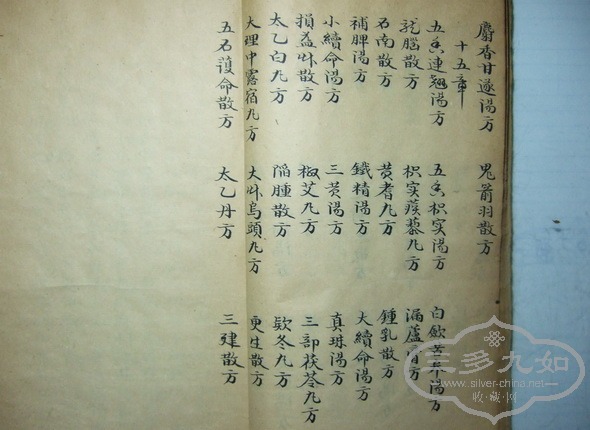 麝香甘遂湯方 鬼箭羽散方
十五章
五香連翹湯方 五香枳实湯方 白歛 湯方
龍腦散方 枳实蒺藜丸方 漏蘆 方
石南散方 黄耆丸方 鍾乳散方
補脾湯方 鐵精湯方 大續命湯方
小續命湯方 三黄湯方 真珠湯方
損益艸散方 椒艾丸方 三部茯苓丸方
太乙白丸方 陷腫散方 欵冬丸方
大理中露宿丸方 大艸烏頭丸方 更生散方
五石護命散方 太乙丹方 三建散方
三多九如
www.silver-china.net
收藏网